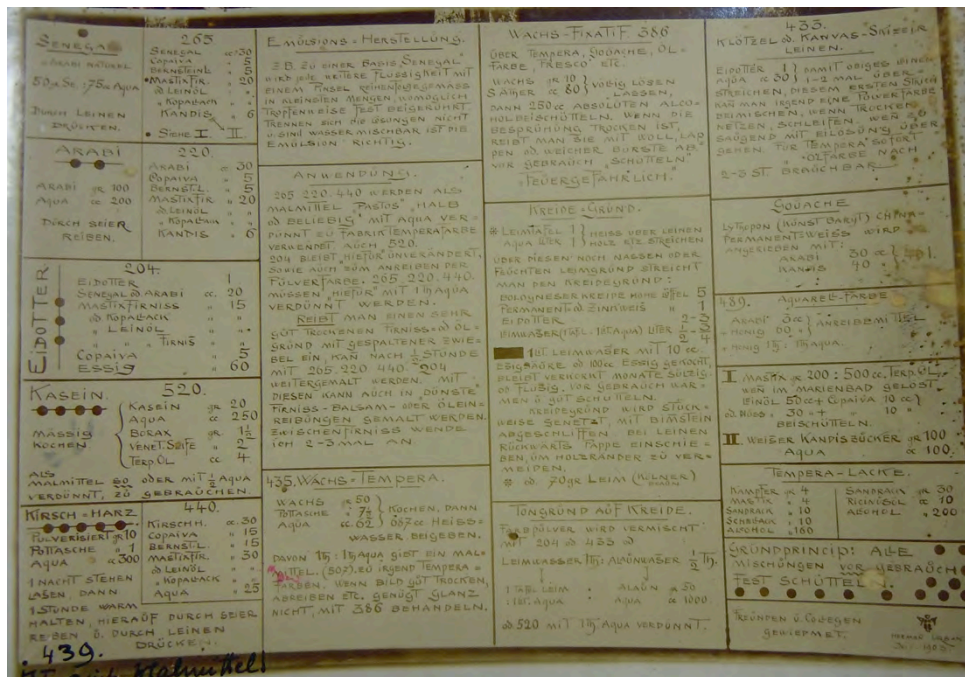 SENEGAL
ARABI NATUREL
50 gr Se : 75 cc Aqua
DURCH LEINEN
DRÜCKEN.
265
SENEGAL cc 30
COPAIVA " 5
BERNSTEINL. " 5
MASTIXFIR. " 20
od LEINÖL "
" KOPALLACK "
KANDIS " 6
SIEHE I. II.
ARABI
ARABI gr 100
AQUA cc 200
DURCH SEIER
REIBEN.
220
ARABI cc 30
COPAIVA " 5
BERNST.L. " 5
MASTIXFIR " 20
od LEINÖL "
" KOPALLACK "
KANDIS " 6
EIDOTTER
204.
EIDOTTER 1
SENEGAL od ARABI cc. 20
MASTIXFIRNISS " 15
od KOPALLACK "
" LEINÖL "
" FIRNIS "
COPAIVA " 5
ESSIG " 60
KASEIN.
MÄSSIG
KOCHEN.
520.
KASEIN gr 20
AQUA cc 250
BORAX gr 1½
VENET. SEIFE " 2
TERP. ÖL cc 4
ALS
MALMITTEL SO ODER MIT ½ AQUA
VERDÜNNT, ZU GEBRAUCHEN.
KIRSCH-HARZ
PULVERISIERT gr 10
POTTASCHE " 1
AQUA cc 300
1 NACHT STEHEN
LASSEN, DANN
1 STUNDE WARM
HALTEN, HIERAUF DURCH SEIER
REIBEN U. DURCH LEINEN
DRÜCKEN.
440.
KIRSCHH. cc. 30
COPAIVA " 15
BERNST.L. " 15
MASTIXFIR. " 30
od LEINÖL "
" KOPALLACK "
AQUA " 25
439.
EMULSIONS-HERSTELLUNG.
Z.B. ZU EINER BASIS SENEGAL
WIRD JEDE WEITERE FLÜSSIGKEIT MIT
EINEM PINSEL REIHENFOLGEGEMÄSS
IN KLEINSTEN MENGEN, WOMÖGLICH
TROPFENWEISE FEST BEIGERÜHRT
TRENNEN SICH DIE LÖSUNGEN NICHT
U. SIND WASSERMISCHBAR IST DIE
EMULSION RICHTIG.
ANWENDUNG.
265. 220. 440 WERDEN ALS
MALMITTEL "PASTOS", "HALB
od BELIEBIG" MIT AQUA VER=
DÜNNT ZU FABRIKTEMPERAFARBE
VERWENDET AUCH 520.
204 BLEIBT HIEFÜR UNVERÄNDERT,
SOWIE AUCH ZUM ANREIBEN DER
PULVERFARBE. 265. 220. 440.
MÜSSEN "HIEFÜR" MIT 1 Tl AQUA
VERDÜNNT WERDEN.
REIBT MAN EINEN SEHR
GUT TROCKENEN FIRNISS- od ÖL=
GRUND MIT GESPALTENER ZWIE=
BEL EIN, KAN NACH ½ STUNDE
MIT 265. 220. 440. 204
WEITERGEMALT WERDEN. MIT
DIESEN KANN AUCH IN DÜNSTE
FIRNISS-BALSAM- ODER ÖLEIN=
REIBUNGEN GEMALT WERDEN.
ZWISCHENFIRNISS WENDE
ICH 2-3 MAL AN.
435. WACHS-TEMPERA.
WACHS gr 50
POTTASCHE " 7½
AQUA cc 62
KOCHEN, DANN
062 cc HEISS=
WASSER BEIGEBEN.
DAVON 1 Tl : 1 Tl AQUA GIBT EIN MAL=
MITTEL. (507). ZU IRGEND TEMPERA=
FARBEN. WENN BILD GUT TROCKEN,
ABREIBEN ETC. GENÜGT GLANZ
NICHT, MIT 386 BEHANDELN.
WACHS-FIXATIF 386
ÜBER TEMPERA, GOUACHE, ÖL=
FARBE, FRESCO ETC.
WACHS gr 10
S. ÄTHER cc 80
VÖLLIG LÖSEN
LASSEN,
DANN 250 cc ABSOLUTEN ALCO=
HOL BEISCHÜTTELN. WENN DIE
BESPRÜHUNG TROCKEN IST,
REIBT MAN SIE MIT WOLL, LAP=
PEN od WEICHER BÜRSTE AB.
VOR GEBRAUCH "SCHÜTTELN"
"FEUERGEFÄHRLICH."
KREIDE-GRUND.
* LEIMTAFEL 1
AQUA LITER 1
HEISS ÜBER LEINEN
HOLZ ETZ. STREICHEN
ÜBER DIESEN NOCH NASSEN ODER
FEUCHTEN LEIMGRUND STREICHT
MAN DEN KREIDEGRUND:
BOLOGNESERKREIDE HOHE LÖFFEL 5
PERMANENT- od ZINKWEIS " 1
EIDOTTER 2-3
LEIMWASSER (1 TAFL - 1 lit AQUA) LITER ½-¾
1 lit. LEIMWASSER MIT 10 cc.
ESSIGSÄURE od 100 cc ESSIG GEKOCHT,
BLEIBT VERKORKT MONATE SULZIG
od FLÜSSIG. VOR GEBRAUCH WÄR=
MEN U GUT SCHÜTTELN.
KREIDEGRUND WIRD STÜCK=
WEISE GENETZT, MIT BIMSTEIN
ABGESCHLIFFEN. BEI LEINEN
RÜCKWÄRTS PAPPE EINSCHIE=
BEN, UM HOLZRÄNDER ZU VER=
MEIDEN.
* od. 70 gr LEIM (KÖLNER)
TONGRUND AUF KREIDE.
FARBPULVER WIRD VERMISCHT
MIT 204 od 433 od
LEIMWASSER 1 Tl : ALAUNWASSER ½ Tl.
1 TAFEL LEIM : ALAUN gr 50
1 lit. AQUA : AQUA gr 1000.
od 520 MIT 1 Tl AQUA VERDÜNNT.
433.
KLÖTZEL od. KANVAS-SKIZZIER
LEINEN.
EIDOTTER 1
AQUA cc 30
DAMIT OBIGES EINE
1-2 MAL ÜBER=
STREICHEN, DIESEM ERSTEN STRICH
KAN MAN IRGEND EINE PULVERFARBE
BEIMISCHEN, WENN TROCKEN
NETZEN, SCHLEIFEN, WEN ZU
SAUGEND MIT EILÖSUNG ÜBER=
GEHEN. FÜR TEMPERA "SOFORT"
" ÖLFARBE NACH
2-3 ST. BRAUCHBAR.
GOUACHE
LYTHOPON (KUNST BARYT) CHINA-
PERMANENTWEISS WIRD
ANGERIEBEN MIT:
ARABI 30 cc
KANDIS 40 "
489. AQUARELL-FARBE
ARABI 3 cc
HONIG 00 "
ANREIBEMITTEL
HONIG 1 Tl. 1 Tl. AQUA.
I MASTIX gr 200 : 500 cc. TERP. ÖL,
WEN IM MARIENBAD GELÖST
LEINÖL 50 cc + COPAIVA 10 cc
od. NUSS " 30 " + " 10 "
BEISCHÜTTELN.
II. WEISSER KANDISZUCKER gr 100
AQUA cc 100.
TEMPERA-LACKE.
KAMPFER gr 4
MASTIX " 4
SANDRAK " 10
SCHELLACK " 10
ALCOHOL " 160
SANDRAK gr 30
RICINUSÖL cc 10
ALCOHOL " 200
GRUNDPRINCIP: ALLE
MISCHUNGEN VOR GEBRAUCH
FEST SCHÜTTELN!
FREUNDEN U. COLLEGEN
GEWIDMET.